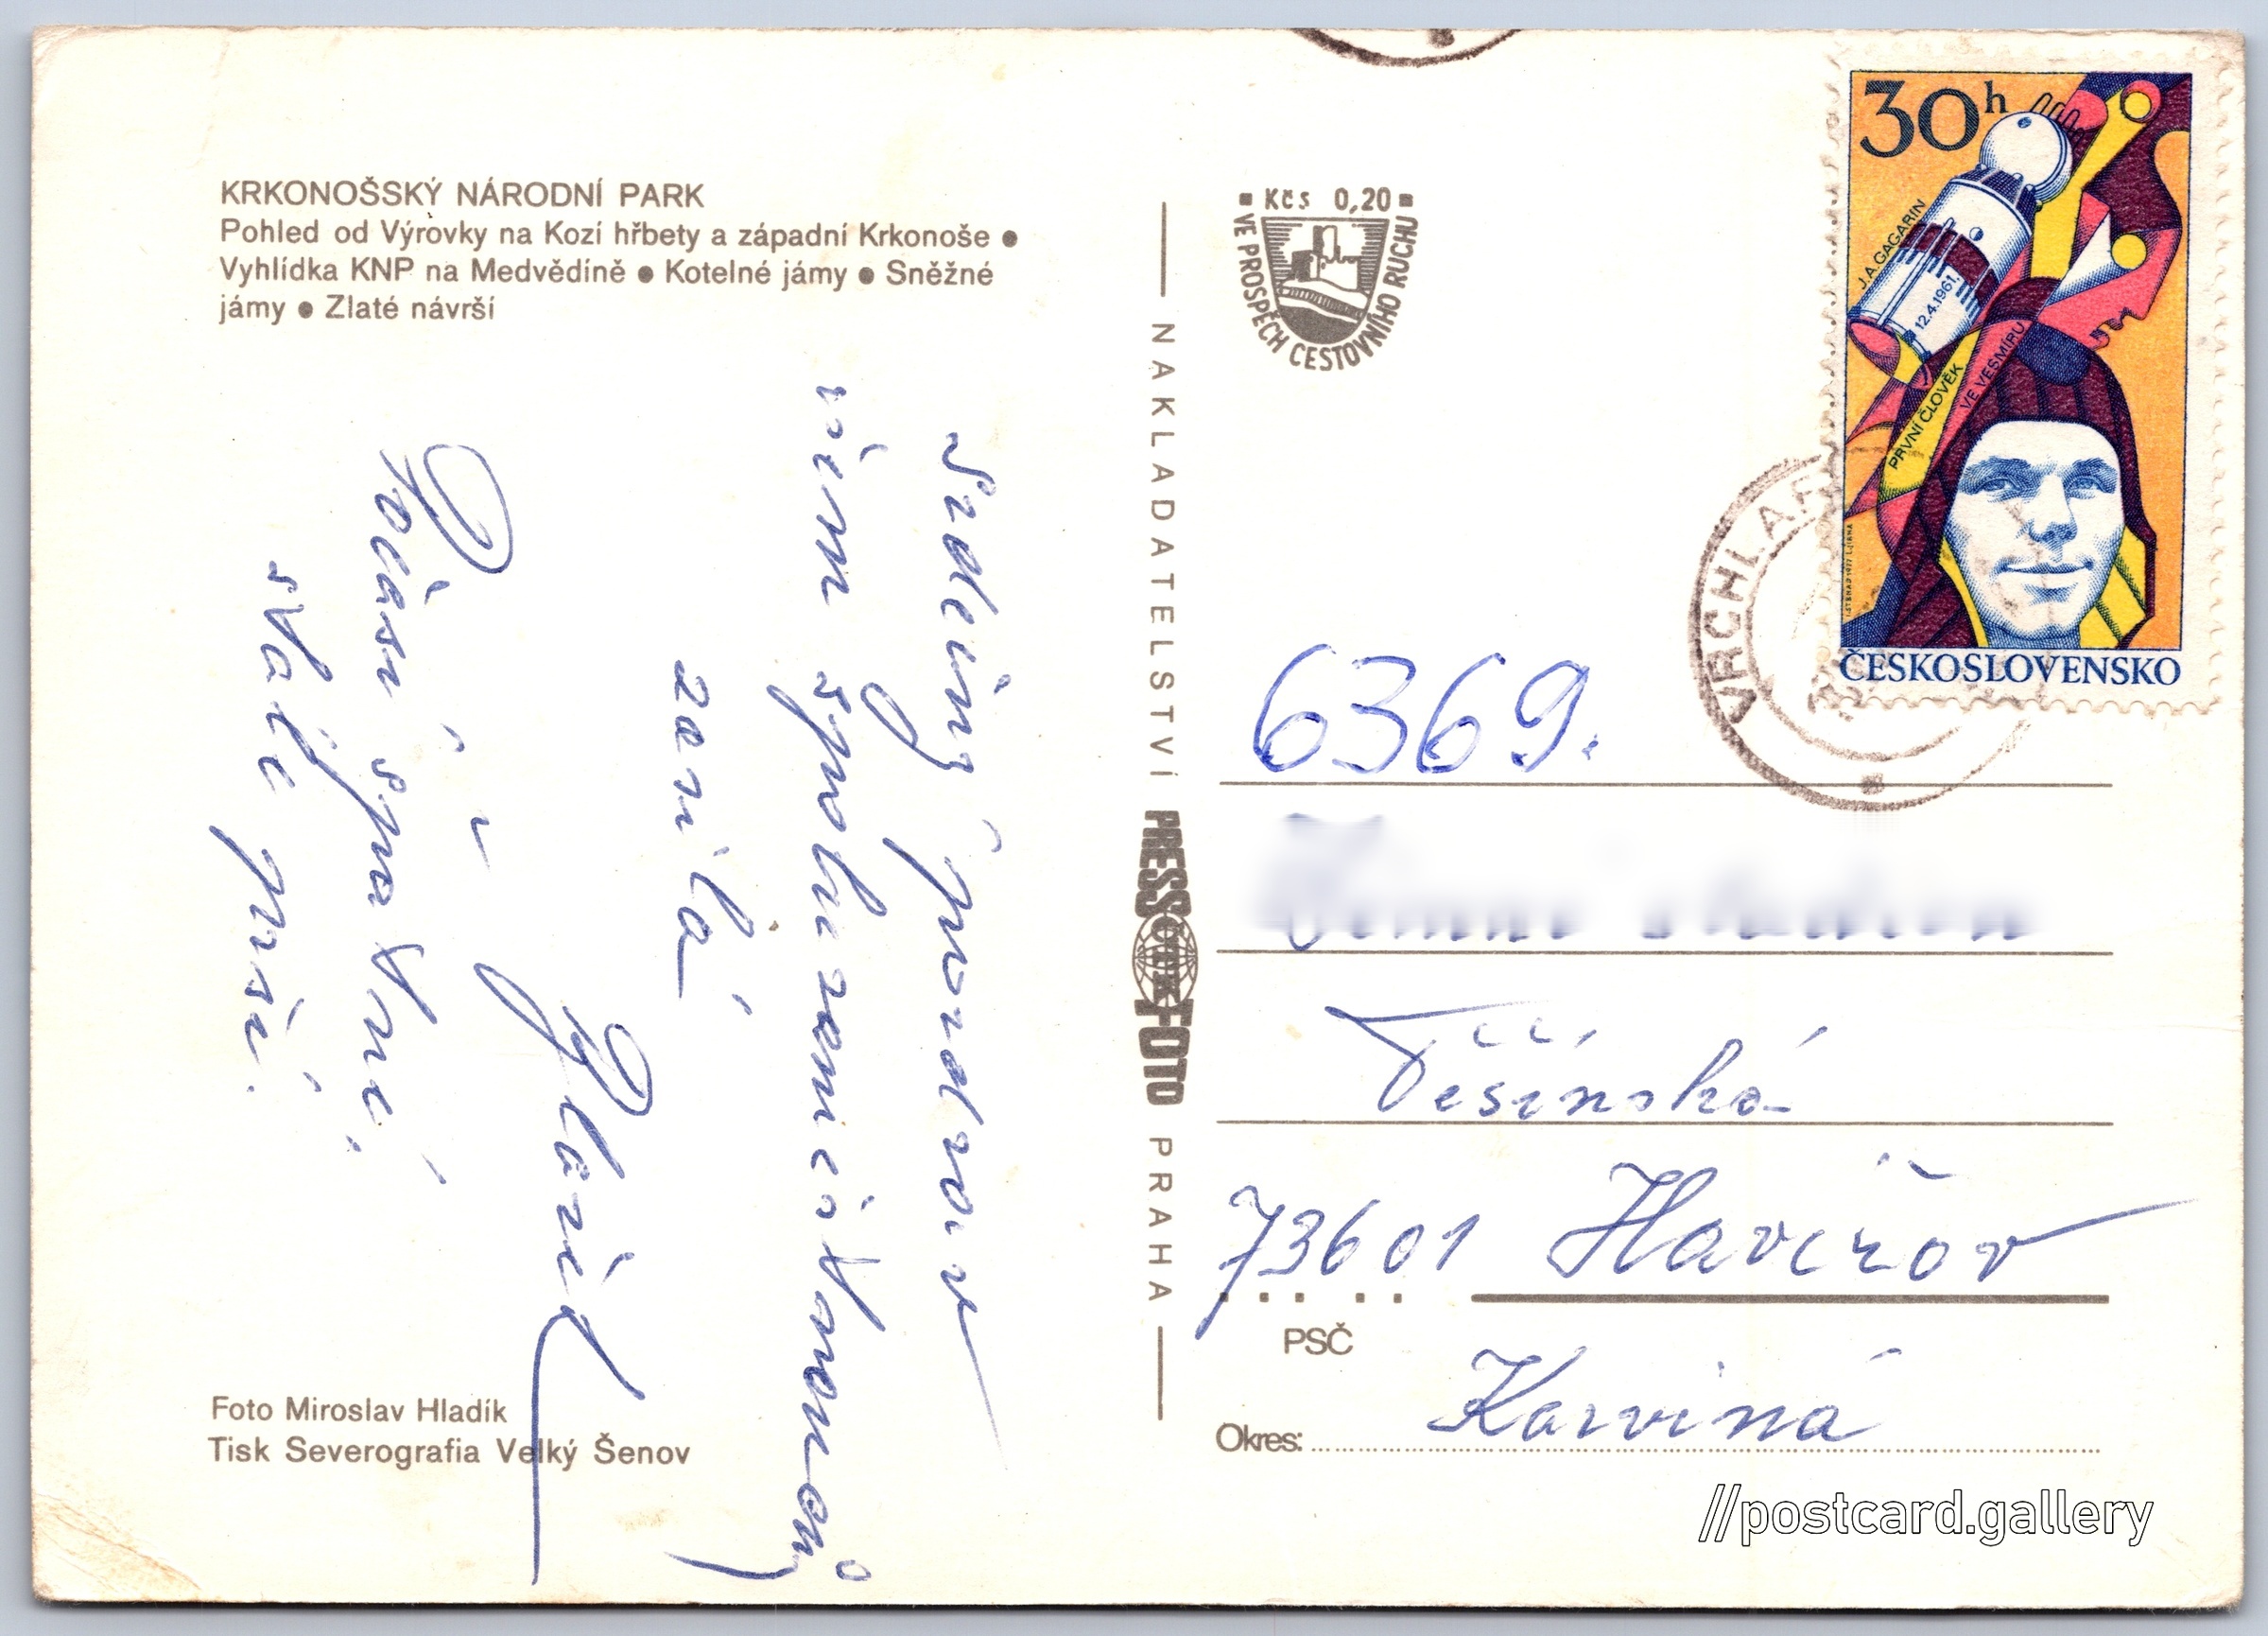 KRKONOŠSKÝ NÁRODNÍ PARK
Pohled od Výrovky na Kozí hřbety a západní Krkonoše ●
Vyhlídka KNP na Medvědíně ● Kotelné jámy ● Sněžné
jámy ● Zlaté návrší
Srdečný pozdrav
všem spoluzaměstnancům
zasílá
Blažík
Počasí správné,
stále prší.
Foto Miroslav Hladík
Tisk Severografia Velký Šenov
NAKLADATELSTVÍ PRESSFOTO PRAHA
ČTK
Kčs 0,20
VE PROSPĚCH CESTOVNÍHO RUCHU
30h
J.A.GAGARIN
12.4.1961
PRVNÍ ČLOVĚK
VE VESMÍRU
ČESKOSLOVENSKO
VRCHLAB
6369.
Těšínská
73601 Havířov
PSČ
Okres: Karviná
//postcard.gallery